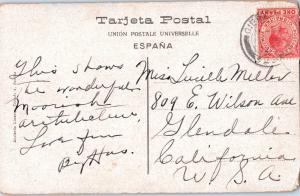 Tarjeta Postal
UNIÓN POSTALE UNIVERSELLE
ESPAÑA
This shows
the wonderful
Moorish
architecture.
Love from
Miss Lucille Miller
809 E. Wilson Ave
Glendale
California
U.S.A